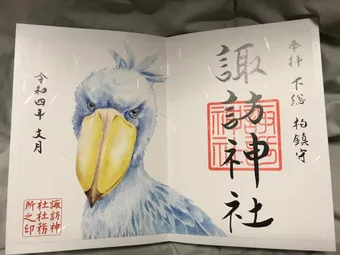 奉拝 下総 柏鎮守
諏訪神社
諏訪
神社
令和四年 文月
諏訪神
社社務
所之印